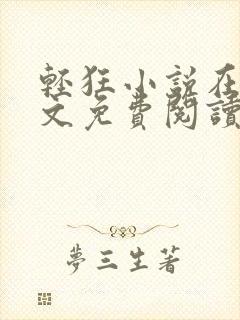 輕狂小說在
文免費閱讀
夢三生著